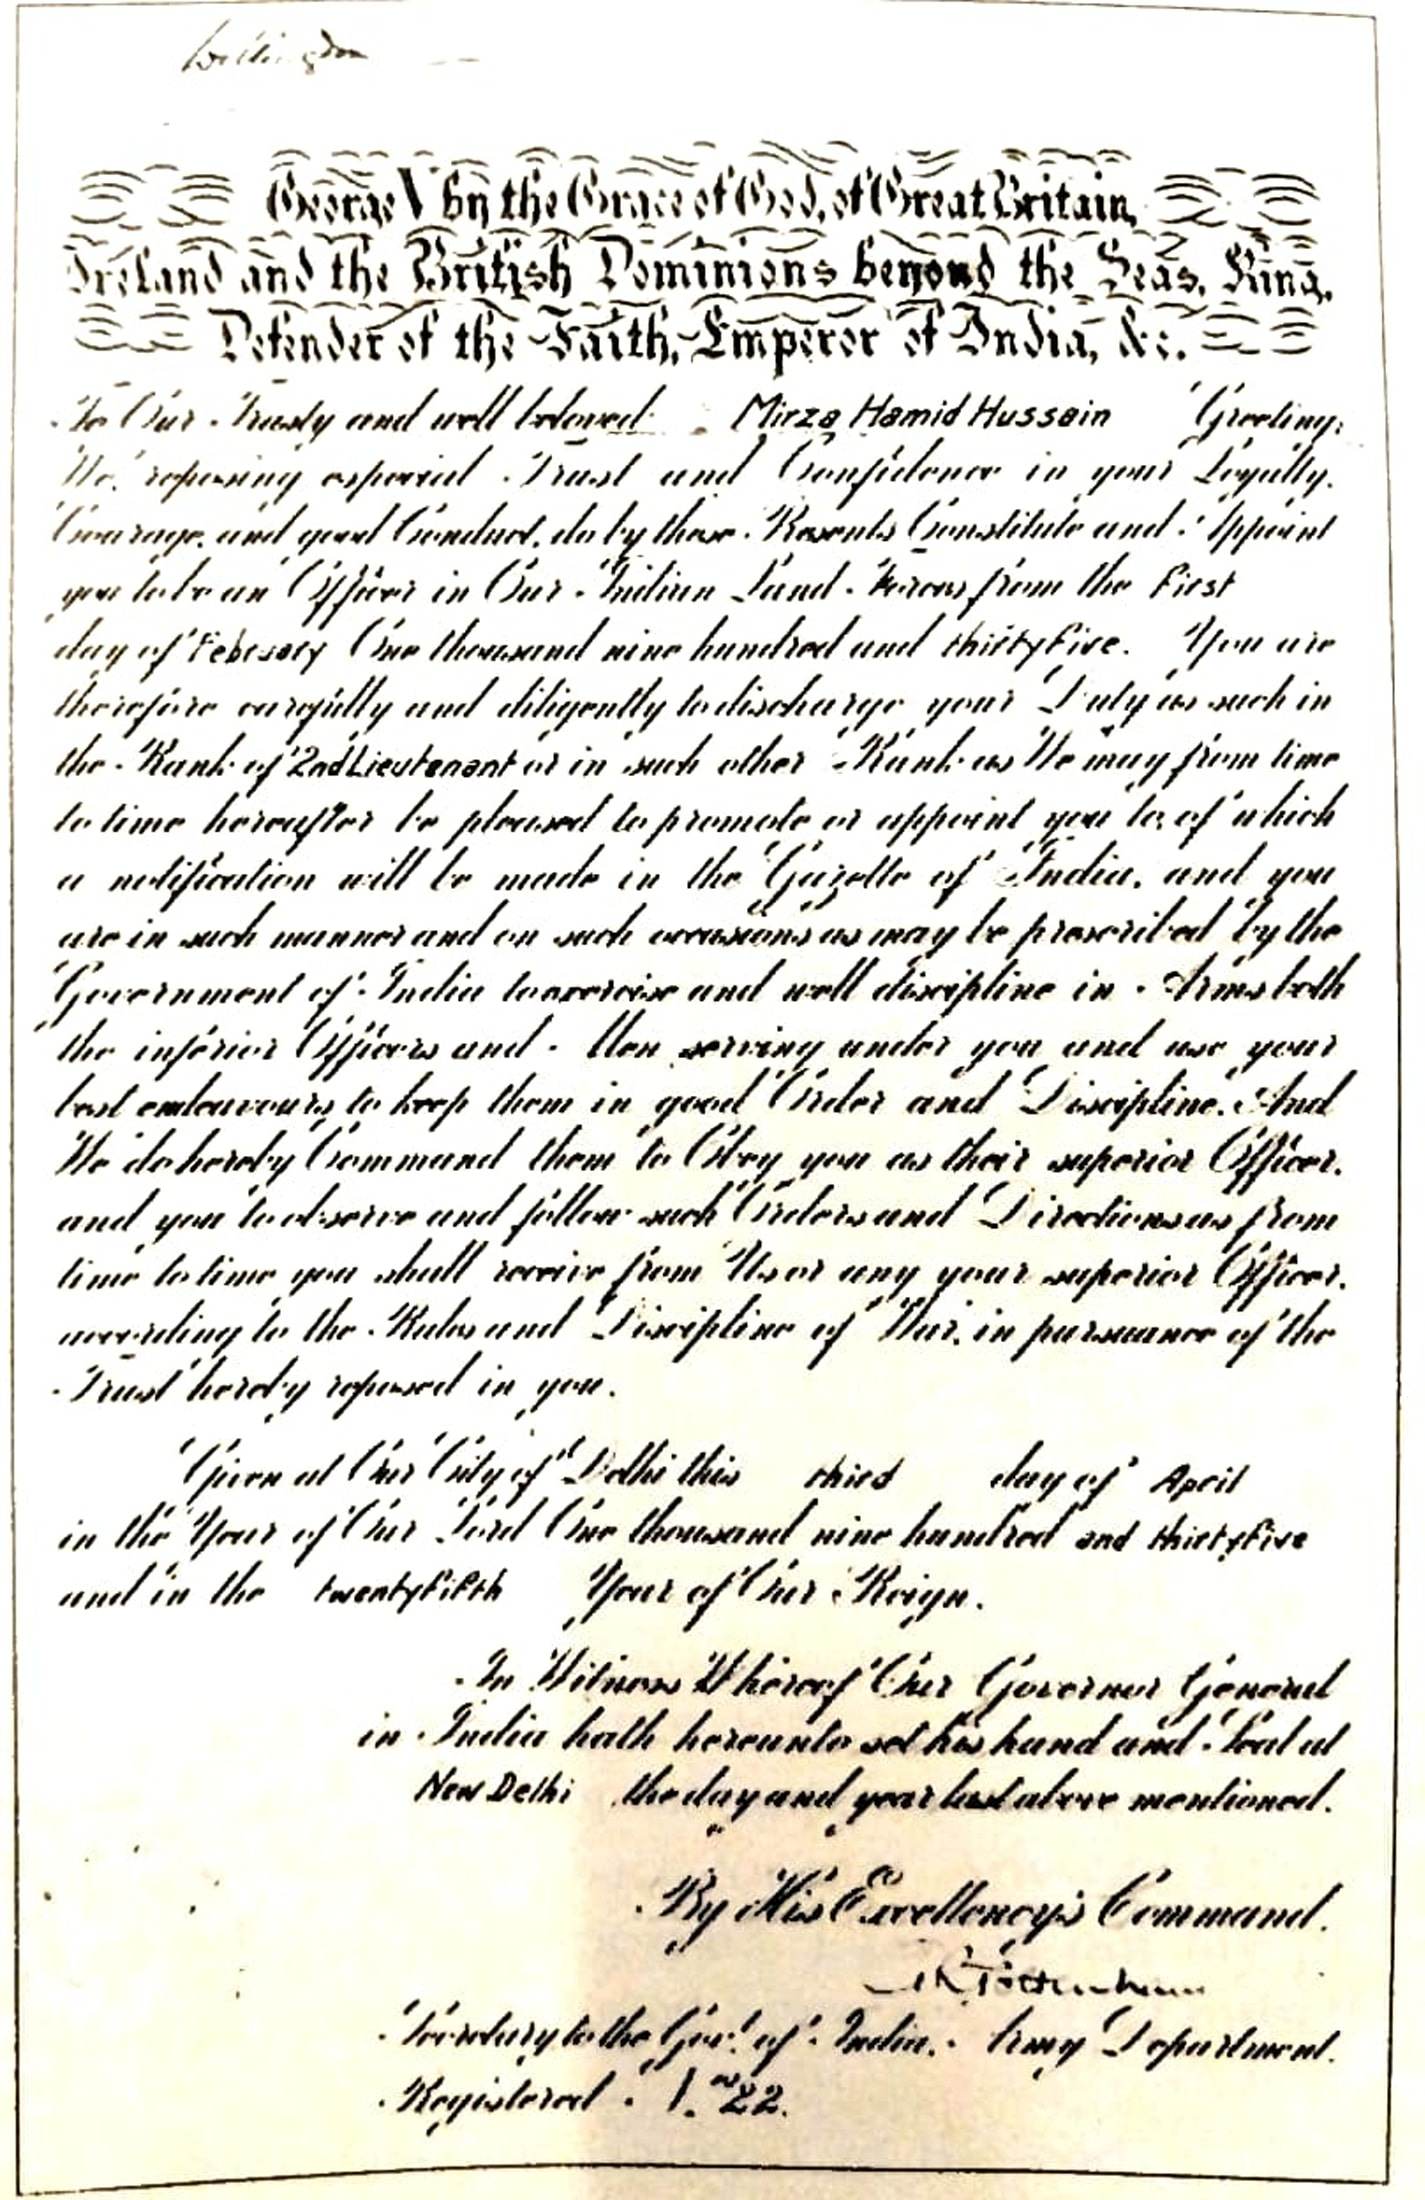 Willingdon
George V by the Grace of God, of Great Britain,
Ireland and the British Dominions beyond the Seas, King,
Defender of the Faith, Emperor of India, &c.
To Our Trusty and well beloved Mirza Hamid Hussain Greeting:
We, reposing especial Trust and Confidence in your Loyalty,
Courage, and good Conduct, do by these Presents Constitute and Appoint
you to be an Officer in Our Indian Land Forces from the first
day of February One thousand nine hundred and thirtyfive. You are
therefore carefully and diligently to discharge your Duty as such in
the Rank of 2nd Lieutenant or in such other Rank as We may from time
to time hereafter be pleased to promote or appoint you to, of which
a notification will be made in the Gazette of India, and you
are in such manner and on such occasions as may be prescribed by the
Government of India to exercise and well discipline in Arms both
the inferior Officers and Men serving under you and use your
best endeavours to keep them in good Order and Discipline. And
We do hereby Command them to Obey you as their superior Officer,
and you to observe and follow such Orders and Directions as from
time to time you shall receive from Us or any your superior Officer,
according to the Rules and Discipline of War, in pursuance of the
Trust hereby reposed in you.
Given at Our City of Delhi this third day of April
in the Year of Our Lord One thousand nine hundred and thirtyfive
and in the twentyfifth Year of Our Reign.
In Witness Whereof Our Governor General
in India hath hereunto set his hand and Seal at
New Delhi the day and year last above mentioned.
By His Excellency's Command.
Tottenham
Secretary to the Govt. of India, Army Department.
Registered No. 22.